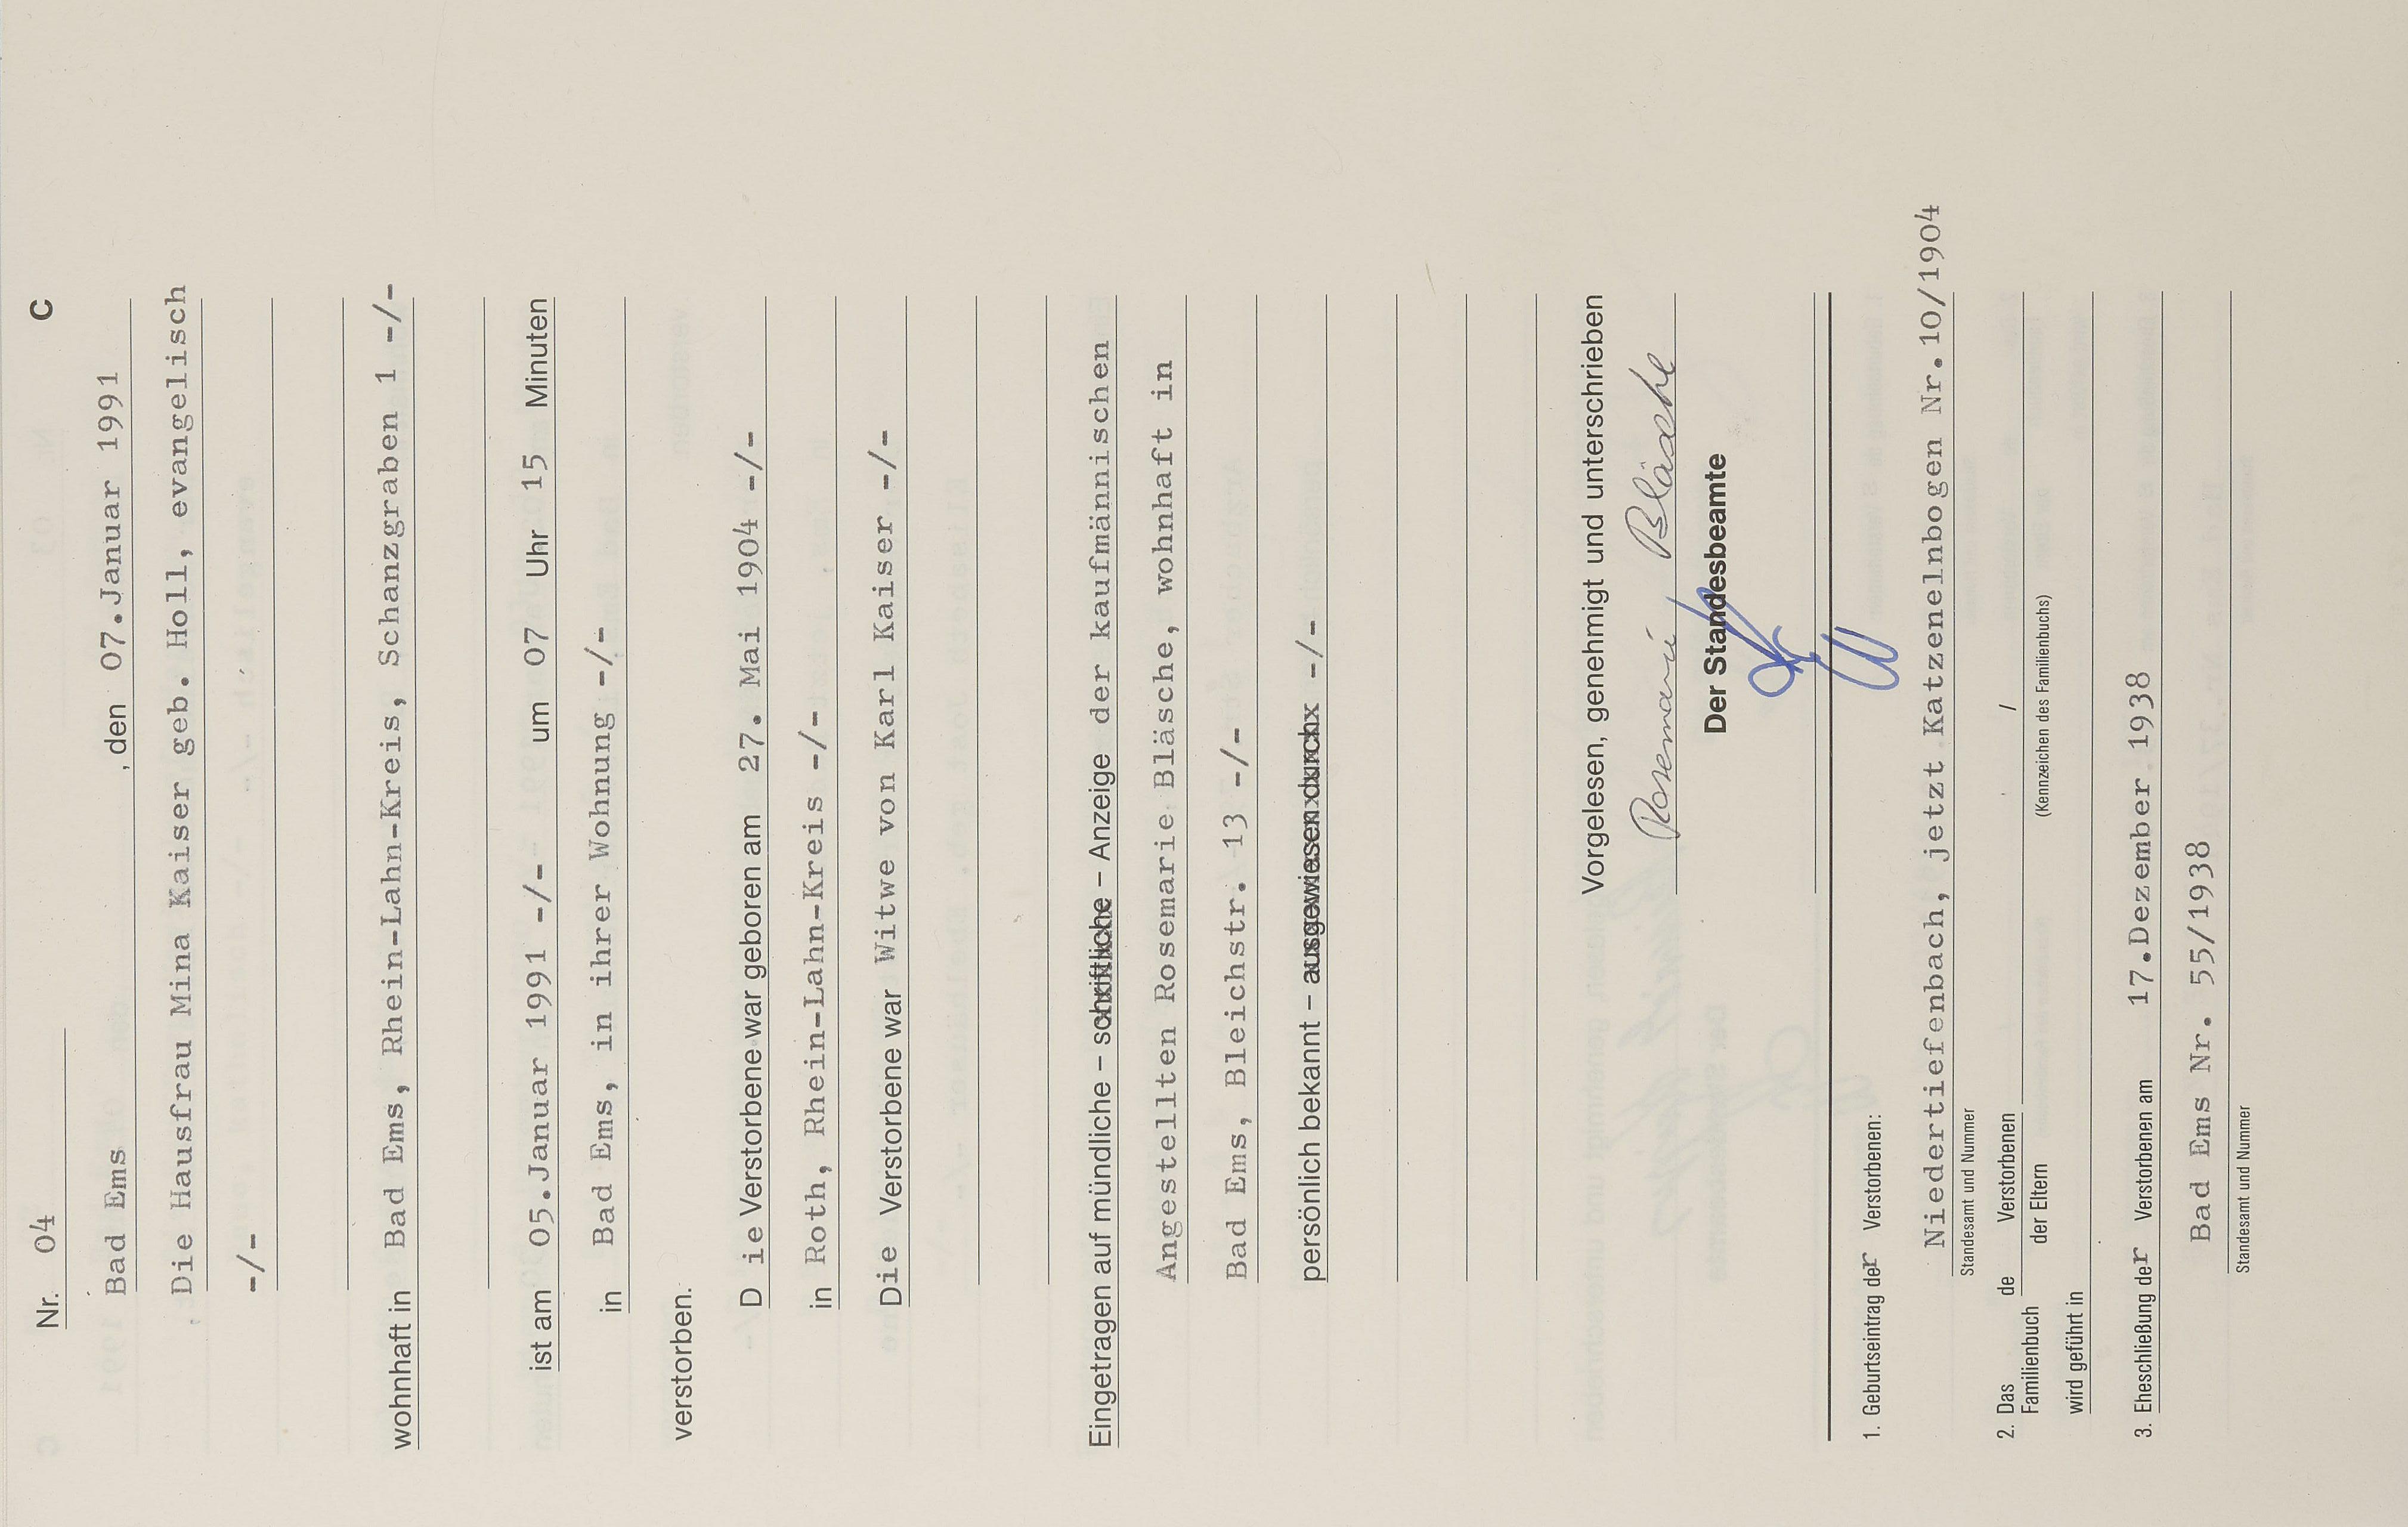 Nr. 04 C
Bad Ems , den 07.Januar 1991
Die Hausfrau Mina Kaiser geb. Holl, evangelisch
-/-
wohnhaft in Bad Ems, Rhein-Lahn-Kreis, Schanzgraben 1 -/-
ist am 05.Januar 1991 -/- um 07 Uhr 15 Minuten
in Bad Ems, in ihrer Wohnung -/-
verstorben.
D ie Verstorbene war geboren am 27. Mai 1904 -/-
in Roth, Rhein-Lahn-Kreis -/-
Die Verstorbene war Witwe von Karl Kaiser -/-
Eingetragen auf mündliche – schriftliche – Anzeige der kaufmännischen
Angestellten Rosemarie Bläsche, wohnhaft in
Bad Ems, Bleichstr. 13 -/-
persönlich bekannt – ausgewiesen durch -/-
Vorgelesen, genehmigt und unterschrieben
Rosemarie Bläsche
Der Standesbeamte
1. Geburtseintrag der Verstorbenen:
Niedertiefenbach, jetzt Katzenelnbogen Nr.10/1904
Standesamt und Nummer
2. Das Familienbuch de Verstorbenen /
der Eltern (Kennzeichen des Familienbuchs)
wird geführt in
3. Eheschließung der Verstorbenen am 17.Dezember 1938
Bad Ems Nr. 55/1938
Standesamt und Nummer